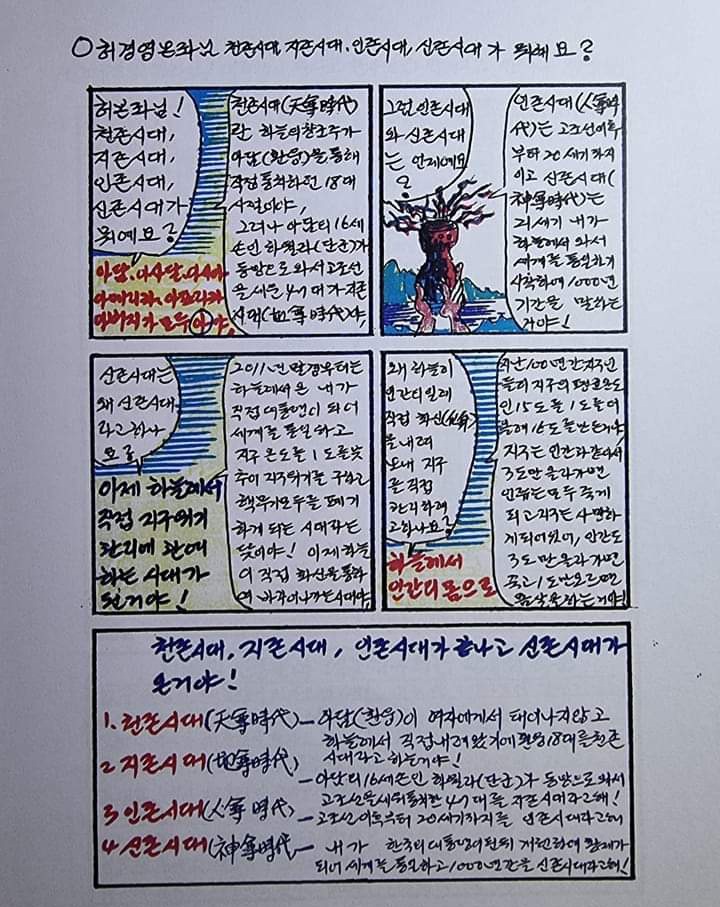 ○ 허경영본좌님 천존시대, 지존시대, 인존시대, 신존시대가 뭐예요?
허본좌님!
천존시대,
지존시대,
인존시대,
신존시대가
뭐예요?
아담, 아사달, 아시아
아메리카, 아프리카
아버지가 모두 아야,
천존시대(天尊時代)
란 하늘의 창조주가
아담(환웅)을 통해
직접 통치하던 18대
시절이야,
그러나 아담의 16세
손인 하필라(단군)가
동방으로 와서 고조선
을 세운 47대가 지존
시대(地尊時代)야,
그럼 인존시대
와 신존시대
는 언제예요
?
인존시대(人尊時
代)는 고조선이후
부터 20세기까지
이고 신존시대(
神尊時代)는
21세기 내가
하늘에서 와서
세계를 통일하기
시작하여 1000년
기간을 말하는
거야!
신존시대는
왜 신존시대
라고 하나
요?
이제 하늘에서
직접 지구위기
관리에 관여
하는 시대가
된거야!
2011년 말경부터는
하늘에서 온 내가
직접 대통령이 되어
세계를 통일하고
지구 온도를 1도를 낮
추어 지구위기를 구하고
핵무기 모두를 폐기
하게 되는 시대라는
뜻이야! 이제 하늘
이 직접 화신을 통하
여
왜 하늘이
인간의 일에
직접 화신(化身)
을 내려
보내 지구
를 직접
관리하려
고 하나요?
하늘에서
인간의 몸으로
지난 100년간 지구인
들이 지구의 평균온도
인 15도를 1도를 더
올해 16도를 만든거야,
지구는 인간과 같아서
3도만 올라가면
인류는 모두 죽게
되고 지구는 사망하
게 되어있어, 인간도
3도만 올라가면
죽고 1도만 오르면
몸살을 하는거야!
천존시대, 지존시대, 인존시대가 끝나고 신존시대가
온거야!
1. 천존시대(天尊時代) - 아담(환웅)이 여자에게서 태어나지 않고
하늘에서 직접 내려왔기에 환웅 18대를 천존
시대라고 하는거야!
2 지존시대(地尊時代) - 아담의 16세손인 하필라(단군)가 동방으로 와서
고조선을 세워 통치한 47대를 지존시대라고해!
3 인존시대(人尊時代) - 고조선이후부터 20세기까지를 인존시대라고해
4 신존시대(神尊時代 - 내가 한국의 대통령이 된뒤 개헌하여 황제가
되어 세계를 통일하고 1000년간을 신존시대라고해!